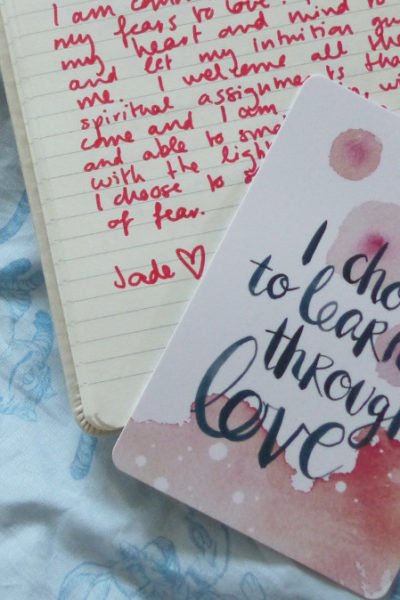 I am
my fears to love.
my heart and mind to
and let my intuition
me. I welcome all the
spiritual assignments
come and I am
and able to
with the light
I choose to
of fear.
Jade ♡
I cho
to learn
through
love